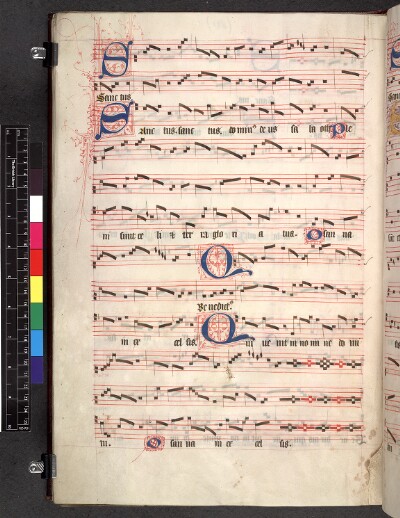 Sanctus
Sanc tus. sanc tus, do min⁹ de us sa ba oth. Ple
ni sunt ce li & ter ra glo ri a tua. O san na
Benedict⁹
in ex cel sis. Qui ve nit in no mi ne do mi
ni. O san na in ex cel sis.